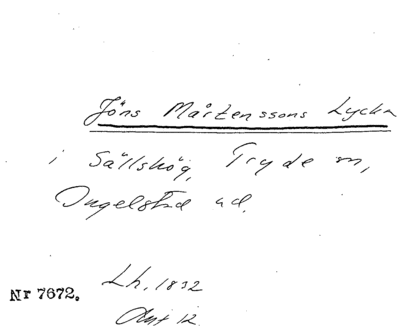 Jöns Mårtenssons Lycka
i Sällshög, Tryde sn,
Ingelstad hd.
Lh, 1832
Nr 7672.
12